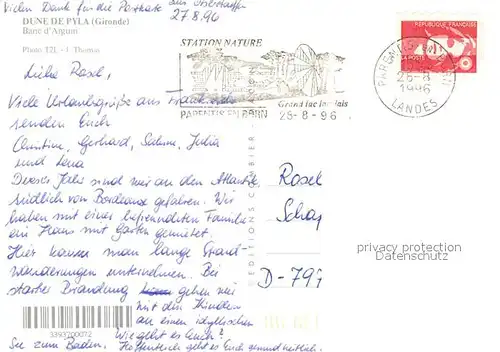 Vielen Dank für die Postkarte aus Oberstaufen
27.8.96
DUNE DE PYLA (Gironde)
Banc d'Arguin
Photo T2L - J. Thomas
Liebe Rosel,
Viele Urlaubsgrüße aus Frankreich
senden Euch
Christine, Gerhard, Sabine, Julia
und Lena
Dieses Jahr sind wir an den Atlantik
südlich von Bordeaux gefahren. Wir
haben mit einer befreundeten Familie
ein Haus mit Garten gemietet.
Hier kann man lange Strand-
wanderungen unternehmen. Bei
starker Brandung gehen wir
mit den Kindern
an einen idyllischen
See zum Baden.
Wie geht es Euch?
Hoffentlich geht es Euch gesundheitlich
3393700072
EDITIONS CHATAGNEAU
STATION NATURE
PARENTIS EN BORN
Grand lac landais
29-8-96
RÉPUBLIQUE FRANÇAISE
LA POSTE
PARENTIS EN BORN
1996
LANDES
Rosel
D-797
privacy protection
DatenSchutz